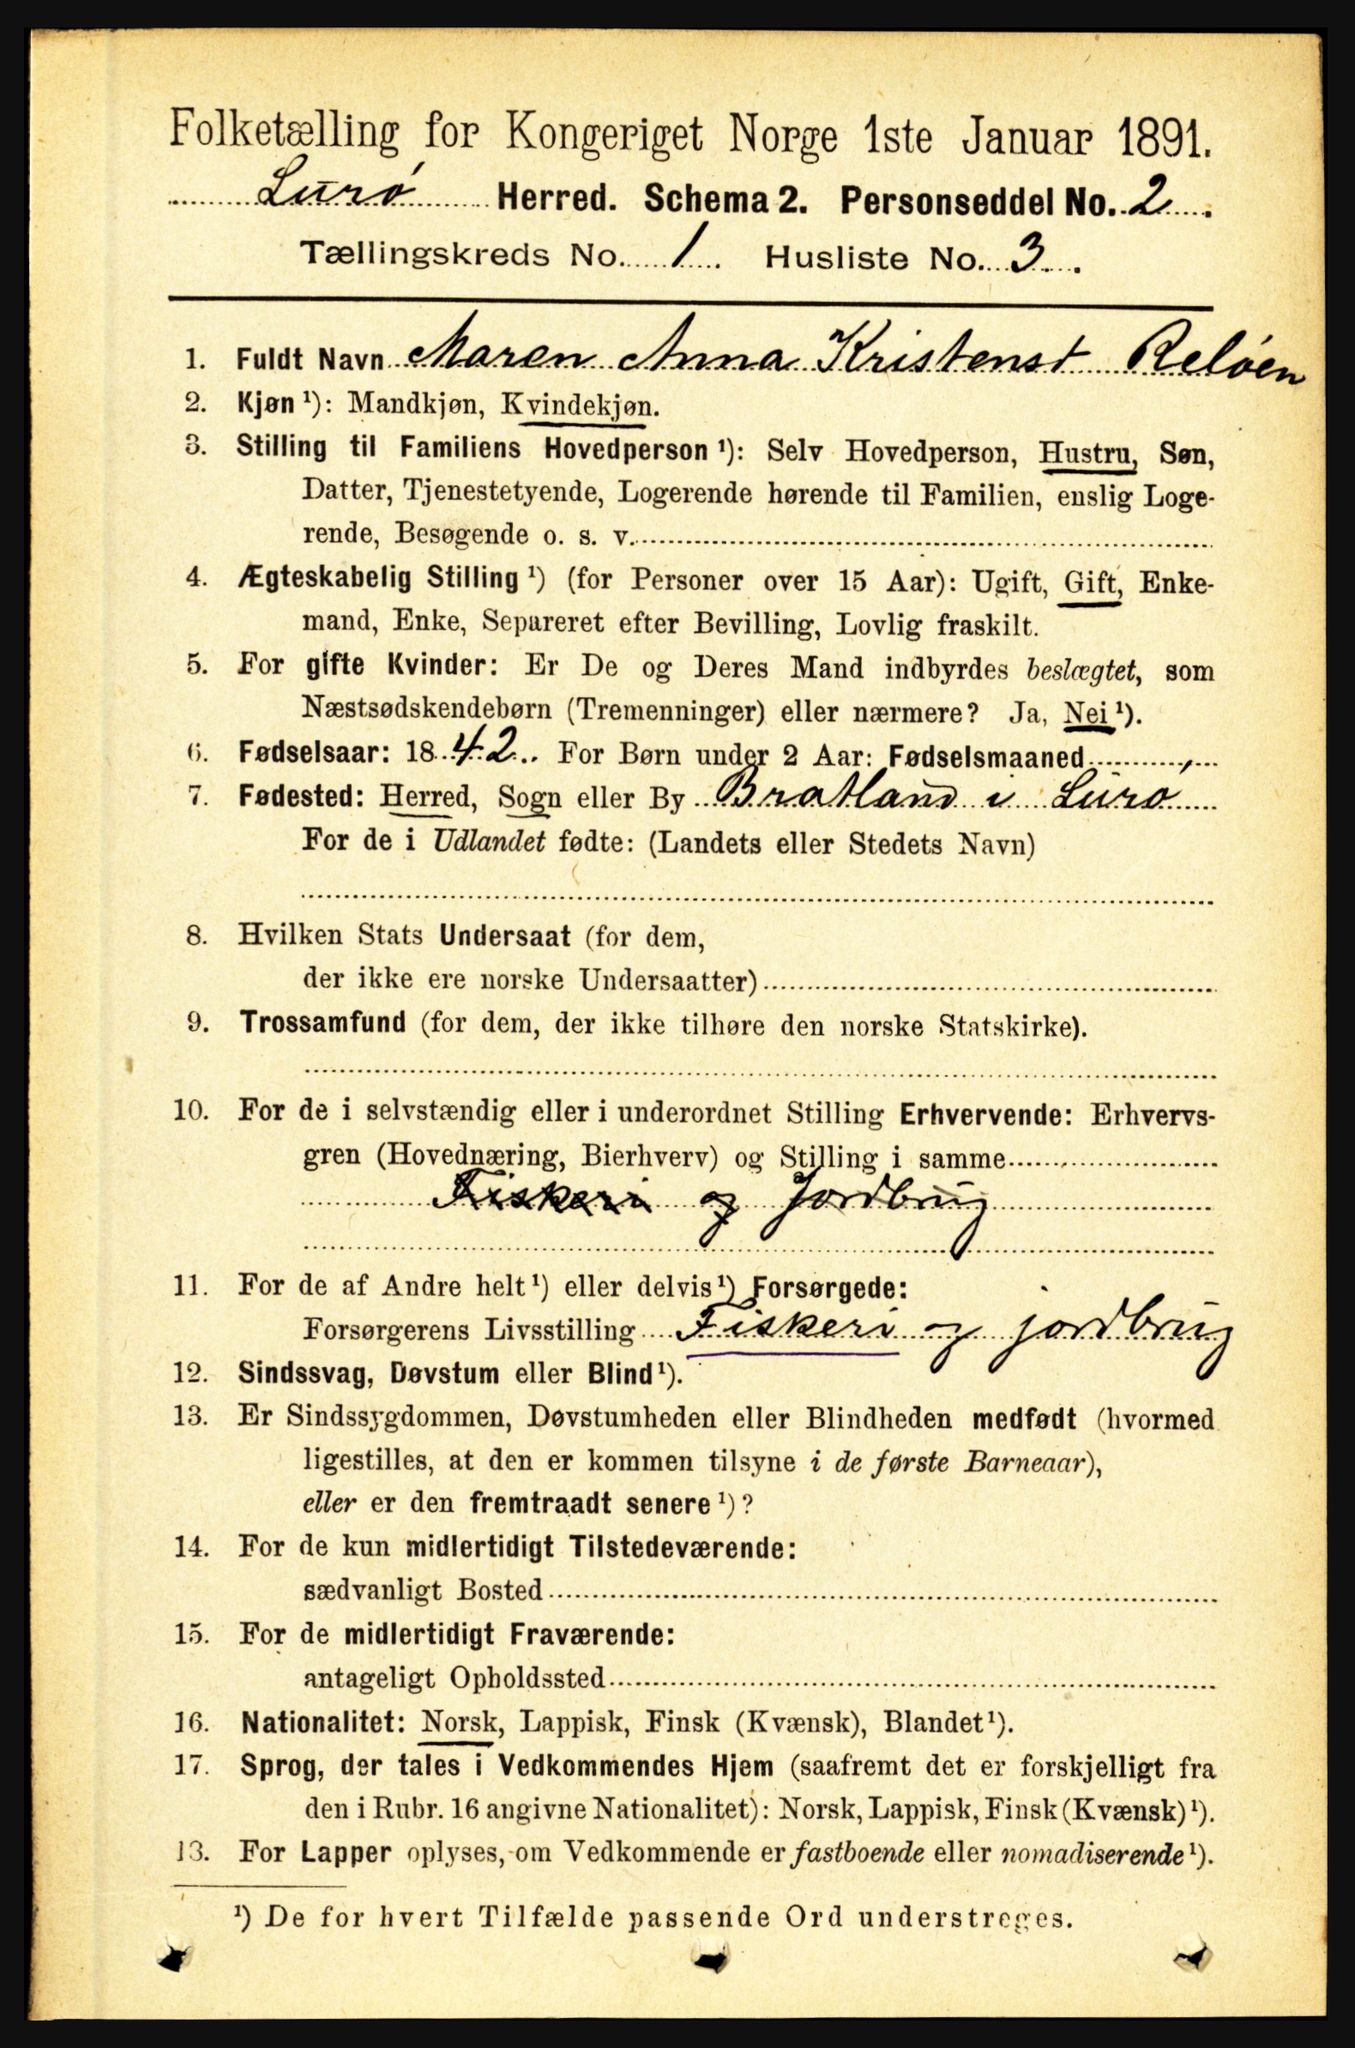 Folketælling for Kongeriget Norge 1ste Januar 1891.
Lurø Herred. Schema 2. Personseddel No. 2
Tællingskreds No. 1 Husliste No. 3.
1. Fuldt Navn Maren Anna Kristensd Reløen
2. Kjøn ¹): Mandkjøn, Kvindekjøn.
3. Stilling til Familiens Hovedperson ¹): Selv Hovedperson, Hustru, Søn,
Datter, Tjenestetyende, Logerende hørende til Familien, enslig Loge-
rende, Besøgende o. s. v.
4. Ægteskabelig Stilling ¹) (for Personer over 15 Aar): Ugift, Gift, Enke-
mand, Enke, Separeret efter Bevilling, Lovlig fraskilt.
5. For gifte Kvinder: Er De og Deres Mand indbyrdes beslægtet, som
Næstsødskendebørn (Tremenninger) eller nærmere? Ja, Nei ¹).
6. Fødselsaar: 1842. For Børn under 2 Aar: Fødselsmaaned
7. Fødested: Herred, Sogn eller By Bratland i Lurø
For de i Udlandet fødte: (Landets eller Stedets Navn)
8. Hvilken Stats Undersaat (for dem,
der ikke ere norske Undersaatter)
9. Trossamfund (for dem, der ikke tilhøre den norske Statskirke).
10. For de i selvstændig eller i underordnet Stilling Erhvervende: Erhvervs-
gren (Hovednæring, Bierhverv) og Stilling i samme
Fiskeri og Jordbrug
11. For de af Andre helt ¹) eller delvis ¹) Forsørgede:
Forsørgerens Livsstilling Fiskeri og jordbrug
12. Sindssvag, Døvstum eller Blind ¹).
13. Er Sindssygdommen, Døvstumheden eller Blindheden medfødt (hvormed
ligestilles, at den er kommen tilsyne i de første Barneaar),
eller er den fremtraadt senere ¹)?
14. For de kun midlertidigt Tilstedeværende:
sædvanligt Bosted
15. For de midlertidigt Fraværende:
antageligt Opholdssted
16. Nationalitet: Norsk, Lappisk, Finsk (Kvænsk), Blandet ¹).
17. Sprog, der tales i Vedkommendes Hjem (saafremt det er forskjelligt fra
den i Rubr. 16 angivne Nationalitet): Norsk, Lappisk, Finsk (Kvænsk) ¹).
13. For Lapper oplyses, om Vedkommende er fastboende eller nomadiserende ¹).
¹) De for hvert Tilfælde passende Ord understreges.